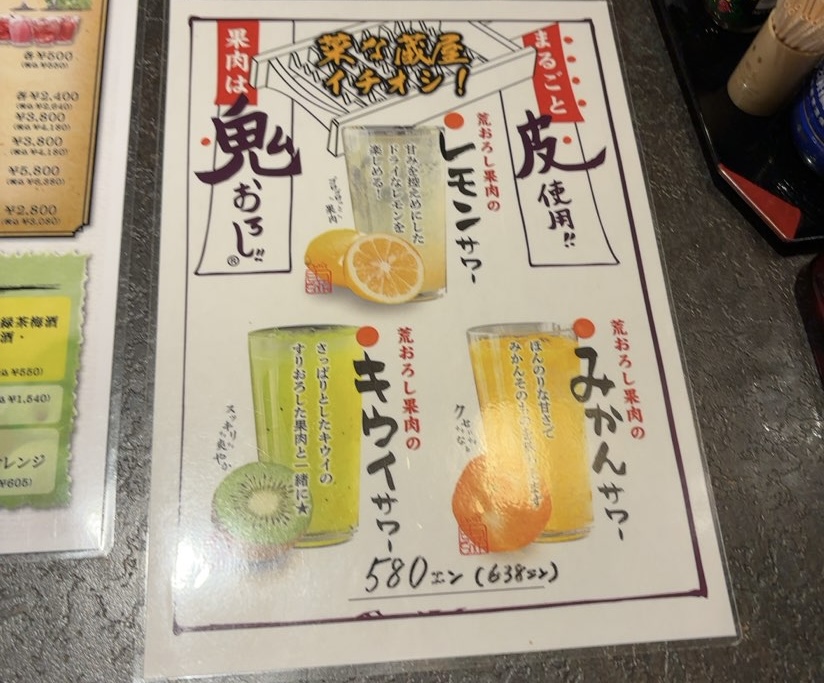 菜な蔵屋
イチオシ！
まるごと
皮
使用!!
果肉は
鬼
おろし!!
®
荒おろし果肉の
レモンサワー
甘みを控えめにした
ドライなレモンを
楽しめる！
荒おろし果肉の
みかんサワー
ほんのりな甘さで
荒おろし果肉の
キウイサワー
さっぱりとしたキウイの
すりおろした果肉と一緒に★
スッキリ爽やか
580エン（638エン）
各¥500
(税込¥550)
各¥2,400
(税込¥2,640)
¥3,800
(税込¥4,180)
¥3,800
(税込¥4,180)
¥5,800
(税込¥6,380)
¥2,800
(税込¥3,080)
緑茶梅酒
¥550)
¥1,540)
レンジ
¥605)